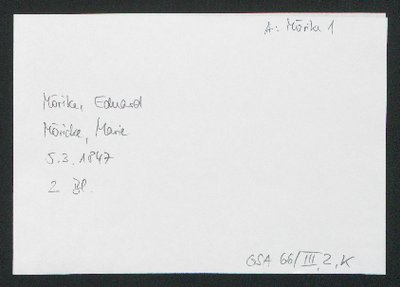 A: Mörike 1
Mörike, Eduard
Möricke, Marie
5.3.1847
2 Bl.
GSA 66/III, 2, K